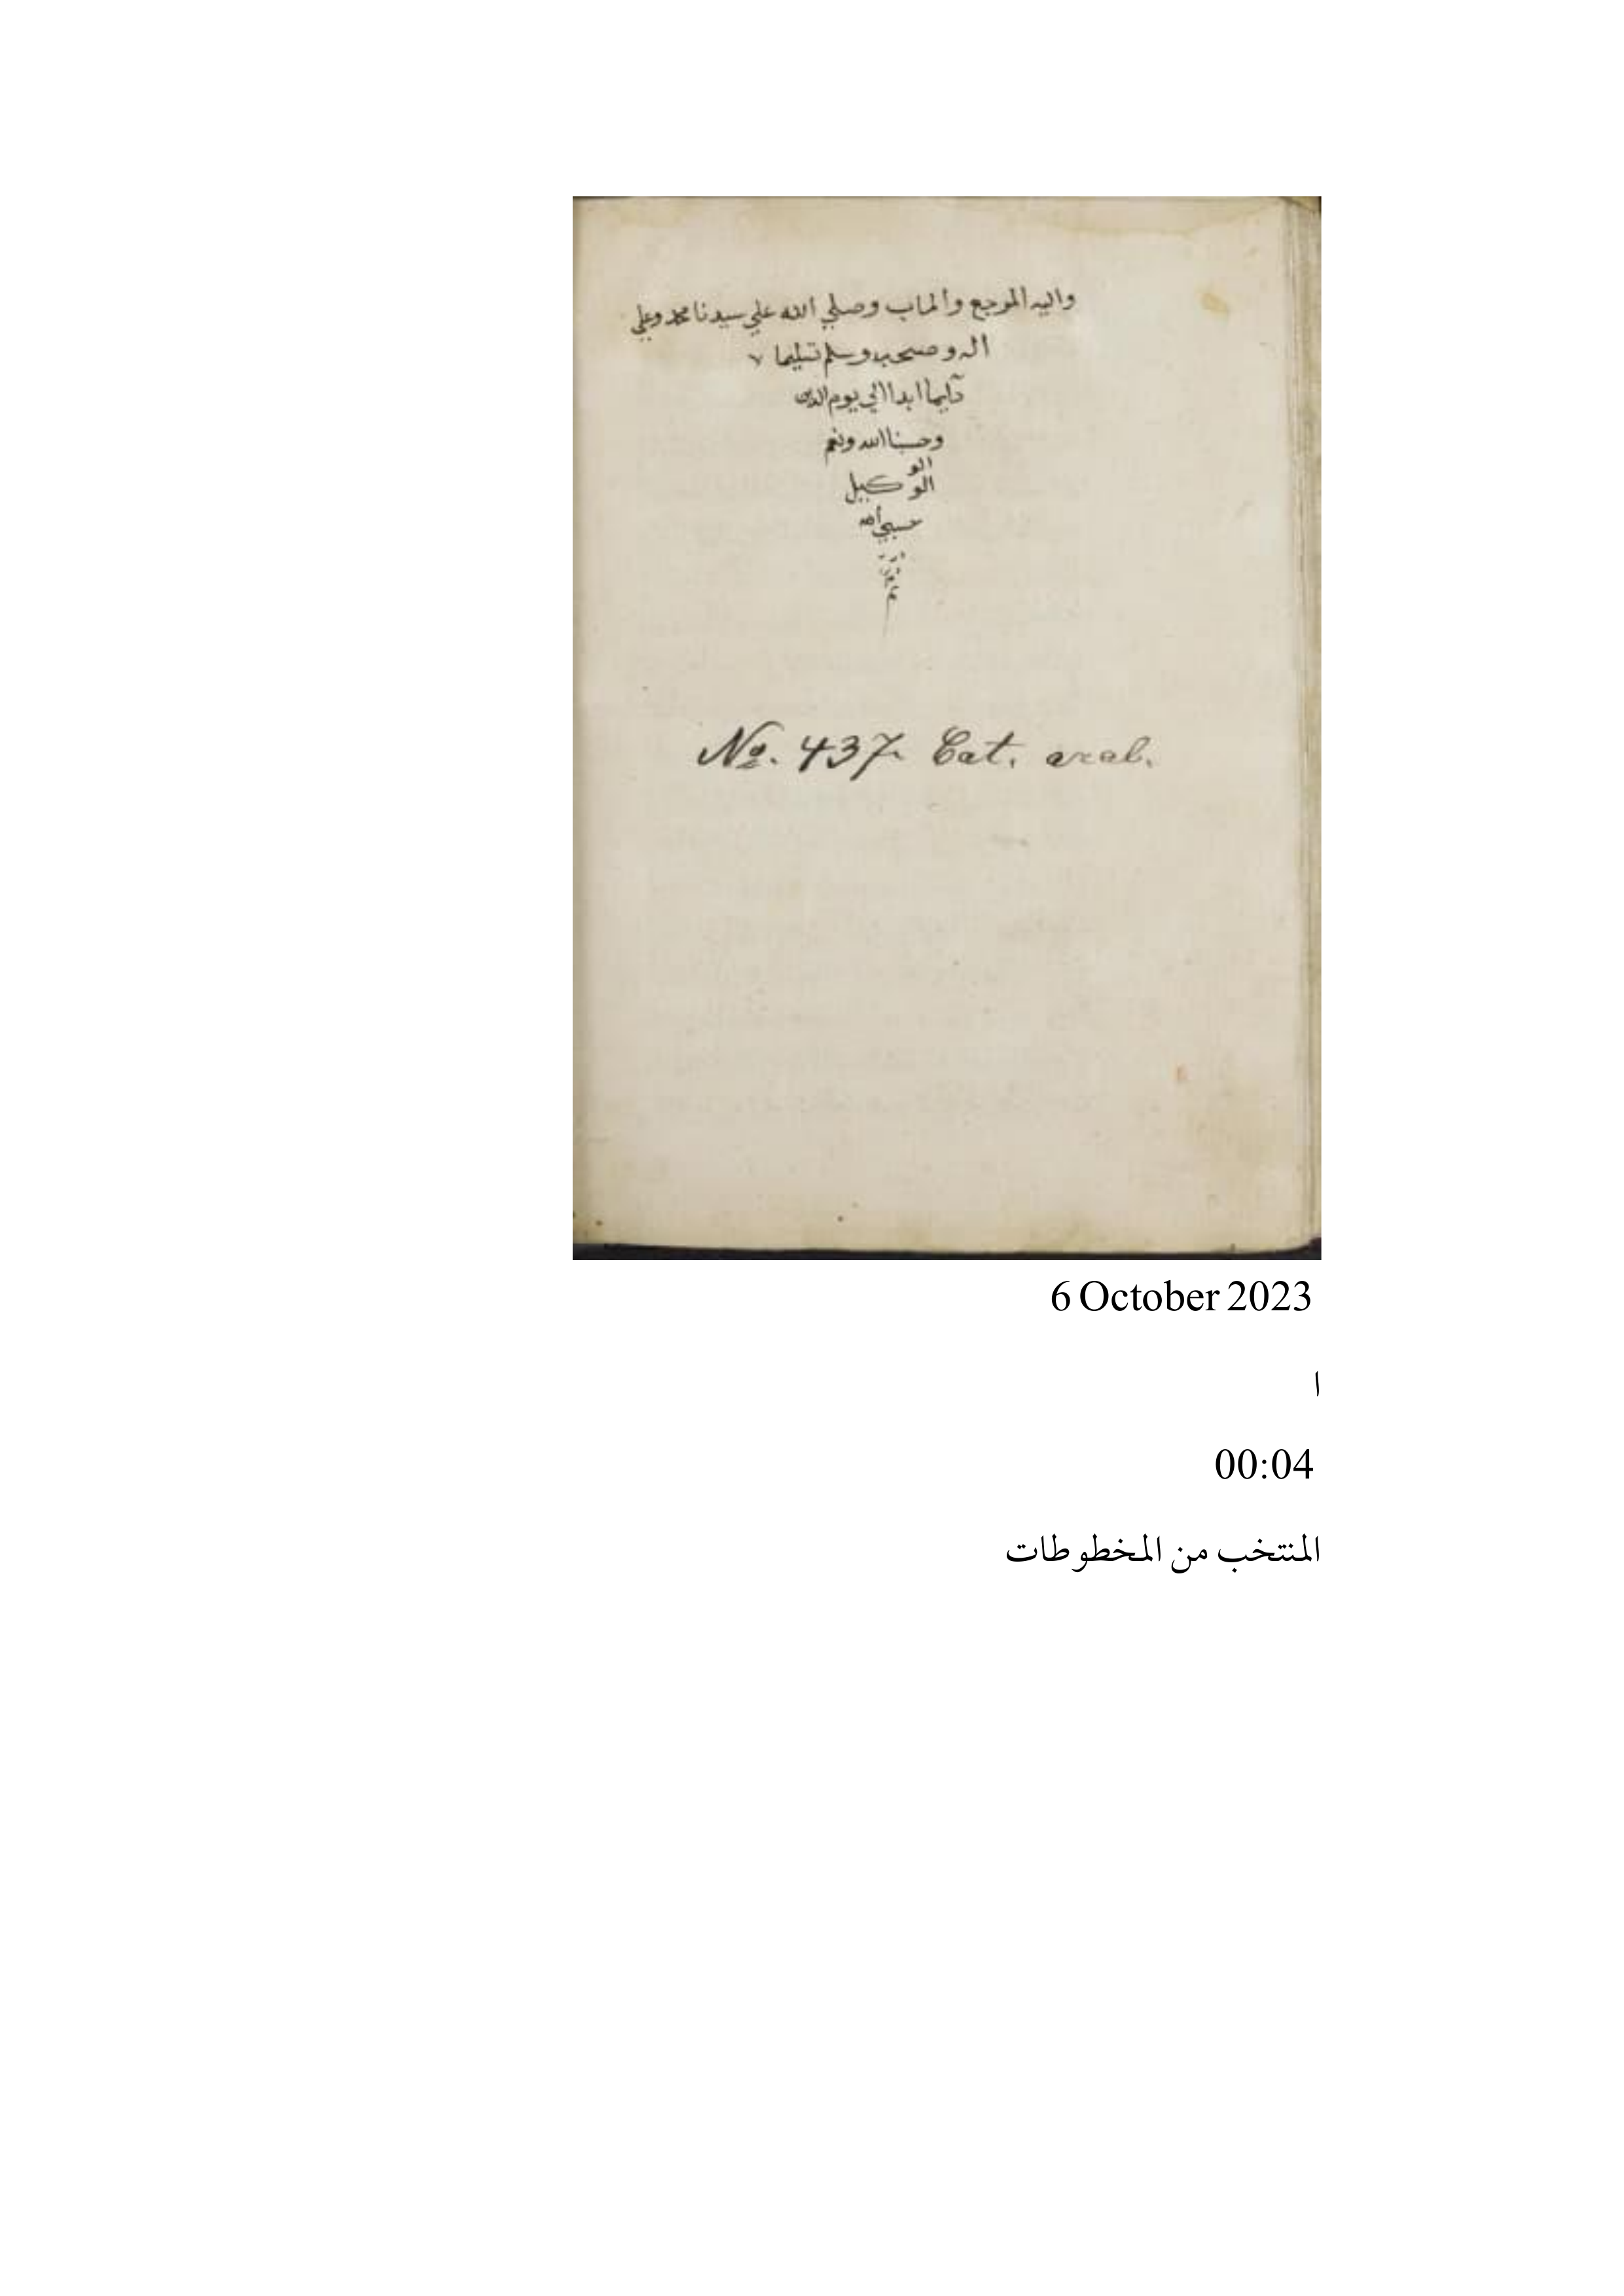 واليه المرجع والماب وصلي الله علي سيدنا محمد وعلي
اله وصحبه وسلم تسليما
دآيما ابدا الي يوم الدين
وحسبنا الله ونعم
الو
الوكيل
حسبي الله
تم
No. 437. Cat. arab.
6 October 2023
ا
00:04
المنتخب من المخطوطات